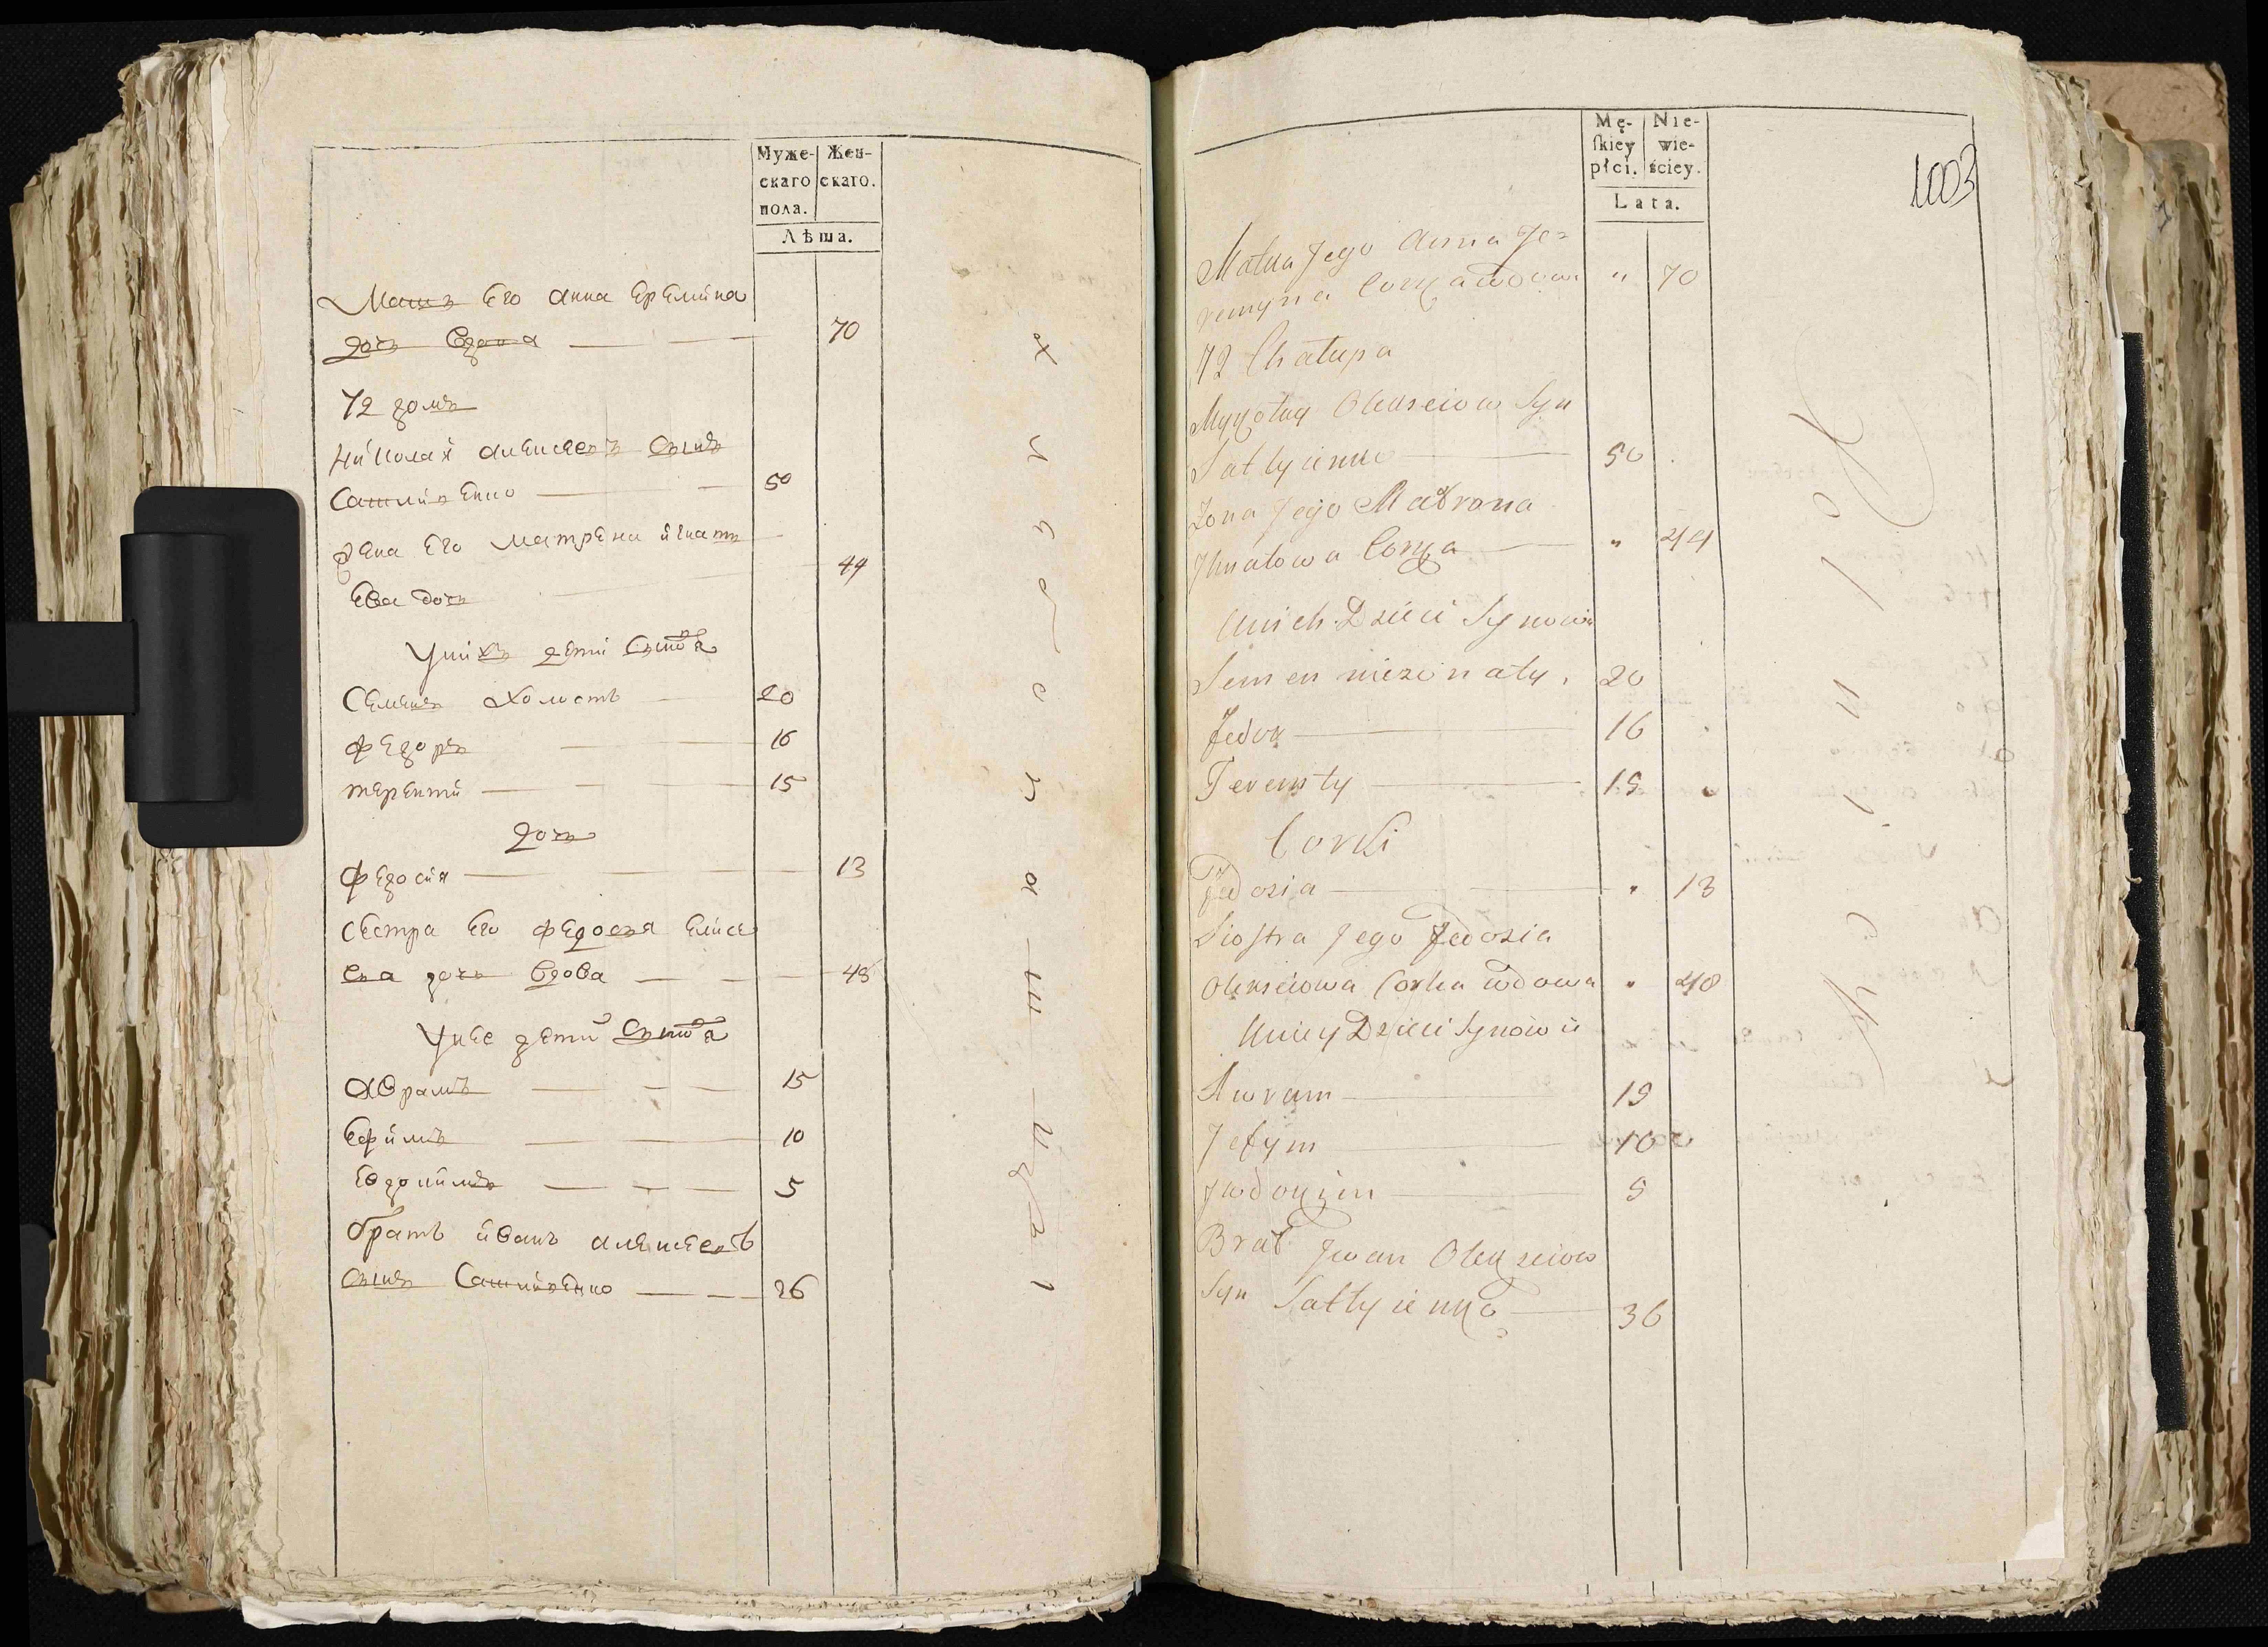 Муже-
скаго
пола.
Жен-
скаго.
Лѣта.
Мать Его Анна Еремина
дочь Вдова 70
72 домъ
Николай Алексеевъ Сынъ
Сатыленко 50
жена Его Матрена Игнать
Ева дочь 44
Унихъ дети Сынов́я
Семенъ Холостъ 20
Федоръ 16
Терентй 15
дочь
Федосия 13
Сестра Его Федосья
дочь Вдова 48
Унее дети Сынов́я
Аврамъ 15
Ефимъ 10
Евдокимъ 5
братъ Иванъ Алексеевъ
Сынъ 26
Mę-
ſkiey
płci.
Nie-
wie-
ściey.
Lata.
1003
Matka Jego Anna Je=
remyna Corka wdowa " 70
72 Chałupa
Mykołay Olekseiow Syn
50
Zona Jego Matrona
Ihnatowa Corka " 44
Unich Dzieci Synowie
Semen niezonaty. 20
Fedor 16
Terenty 15
Corki
Fedosia " 13
Siostra Jego Fedosia
Olekseiowa Corka wdowa " 48
Uniey Dzieci Synowie
Awram 15
Jefym 10
Jwdokim 5
Brat Jwan Olekseiow
Syn 36